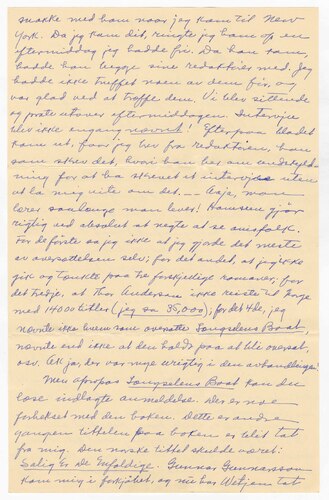 snakke med ham naar jeg kom til New
York. Da jeg kom dit, ringte jeg ham op en
eftermiddag jeg hadde fri. Da han kom,
hadde han begge sine redaktører med. Jeg
hadde ikke truffet noen av dem før, og
var glad ved at træffe dem. Vi blev sittende
og prate utover eftermiddagen. Intervju
blev ikke engang nævnt! Efterpaa bladet
kom ut, faar jeg brev fra redaktøren, han
som skrev det, hvori han ber om undskyld-
ning for at ha skrevet et intervju uten
at la mig vite om det. — Aaja, man
lærer saalænge man lever! Hansen gjør
rigtig ved absolut at negte at se avisfolk.
For det første sa jeg ikke at jeg gjorde det meste
av oversættelsen selv; for det andet, at jeg ikke
gik og tænkte paa tre forskjellige romaner; for
det tredje, at Thor Andersen ikke reiste til Norge
med 14000 titler (jeg sa 35,000); for det 4de, jeg
nævnte ikke hvem som oversatte Longselens Baat,
nævnte end ikke at den holdt paa at bli oversat,
osv. Ak ja, der var mye urigtig i den avhandlingen!
Men apropos Longselens Baat kan du
læse indlagte anmeldelse. Der er noe
forhekset med den boken. Dette er andre
gangen tittelen paa boken er blit tat
fra mig. Den norske tittel skulde været:
Salig Er De Enfoldige. Gunnar Gunnarsson
kom mig i forkjøpet, og nu har Wetjen tat